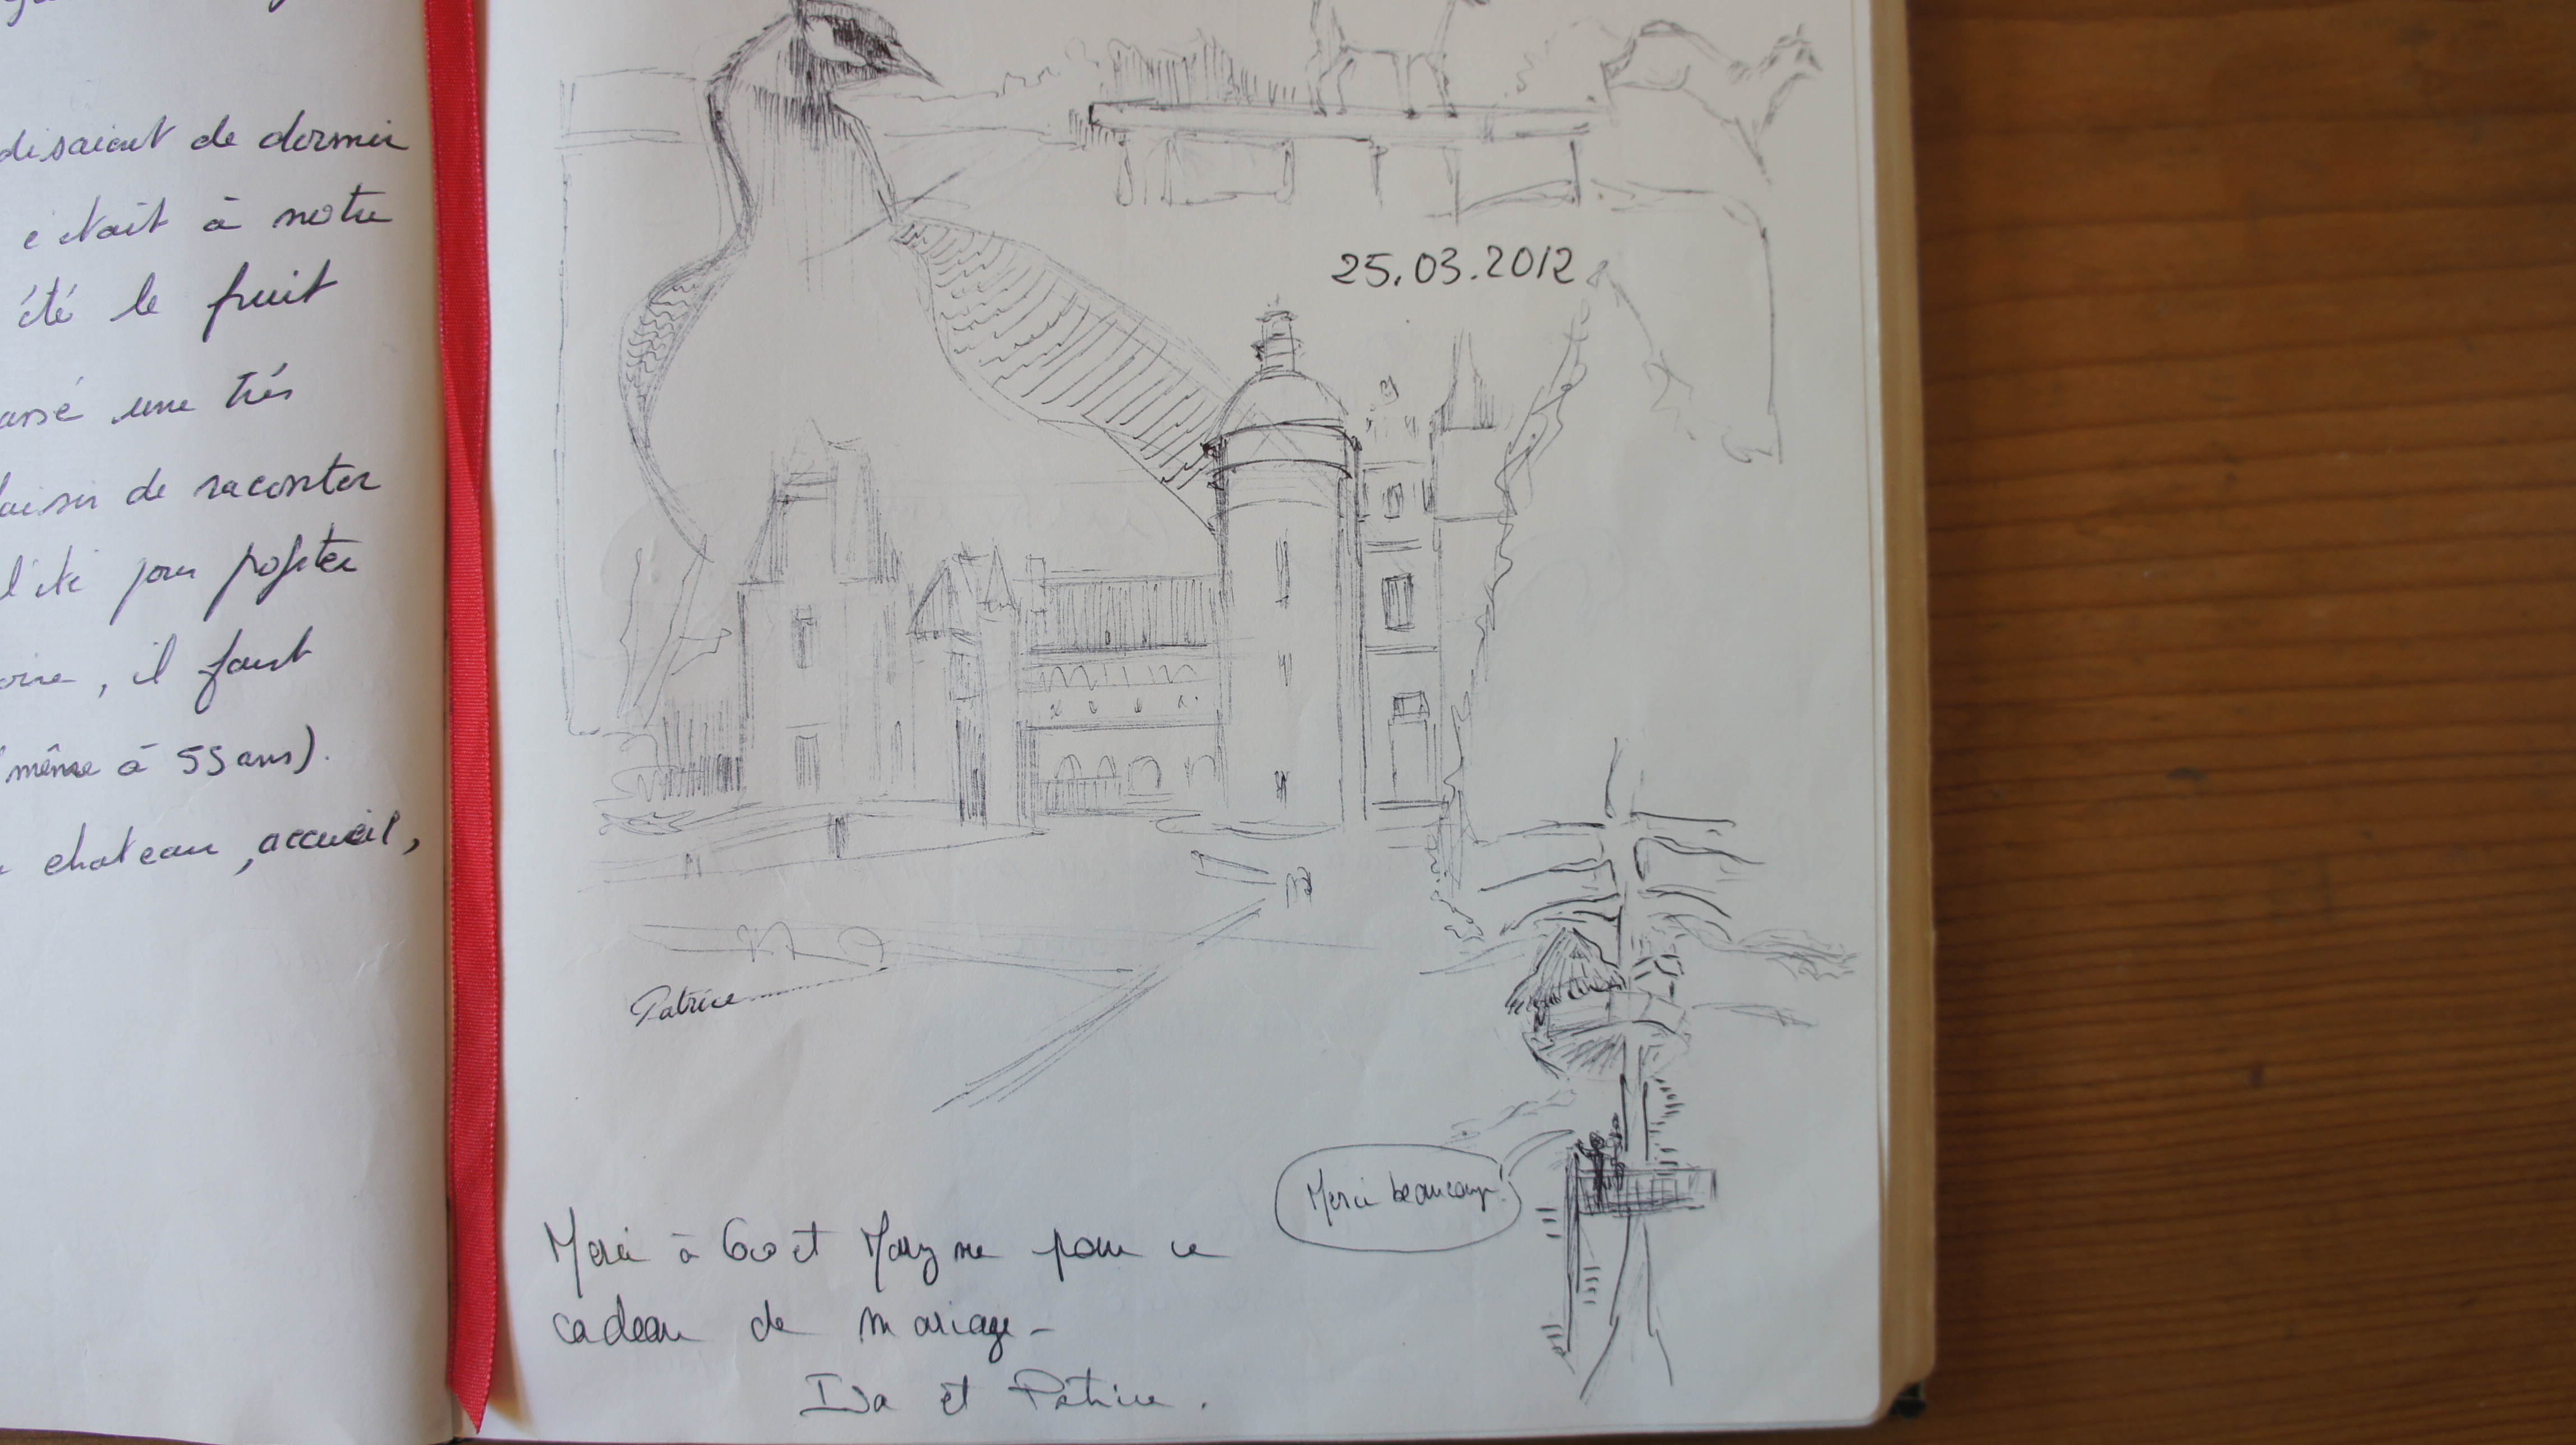 disaient de dormir
était à notre
été le fruit
une très
de raconter
pour profiter
, il faut
même à 55 ans).
chateau, accueil,
25.03.2012
Patrice
Merci beaucoup!
Merci à et pour ce
cadeau de mariage-
Isa et Patrice.